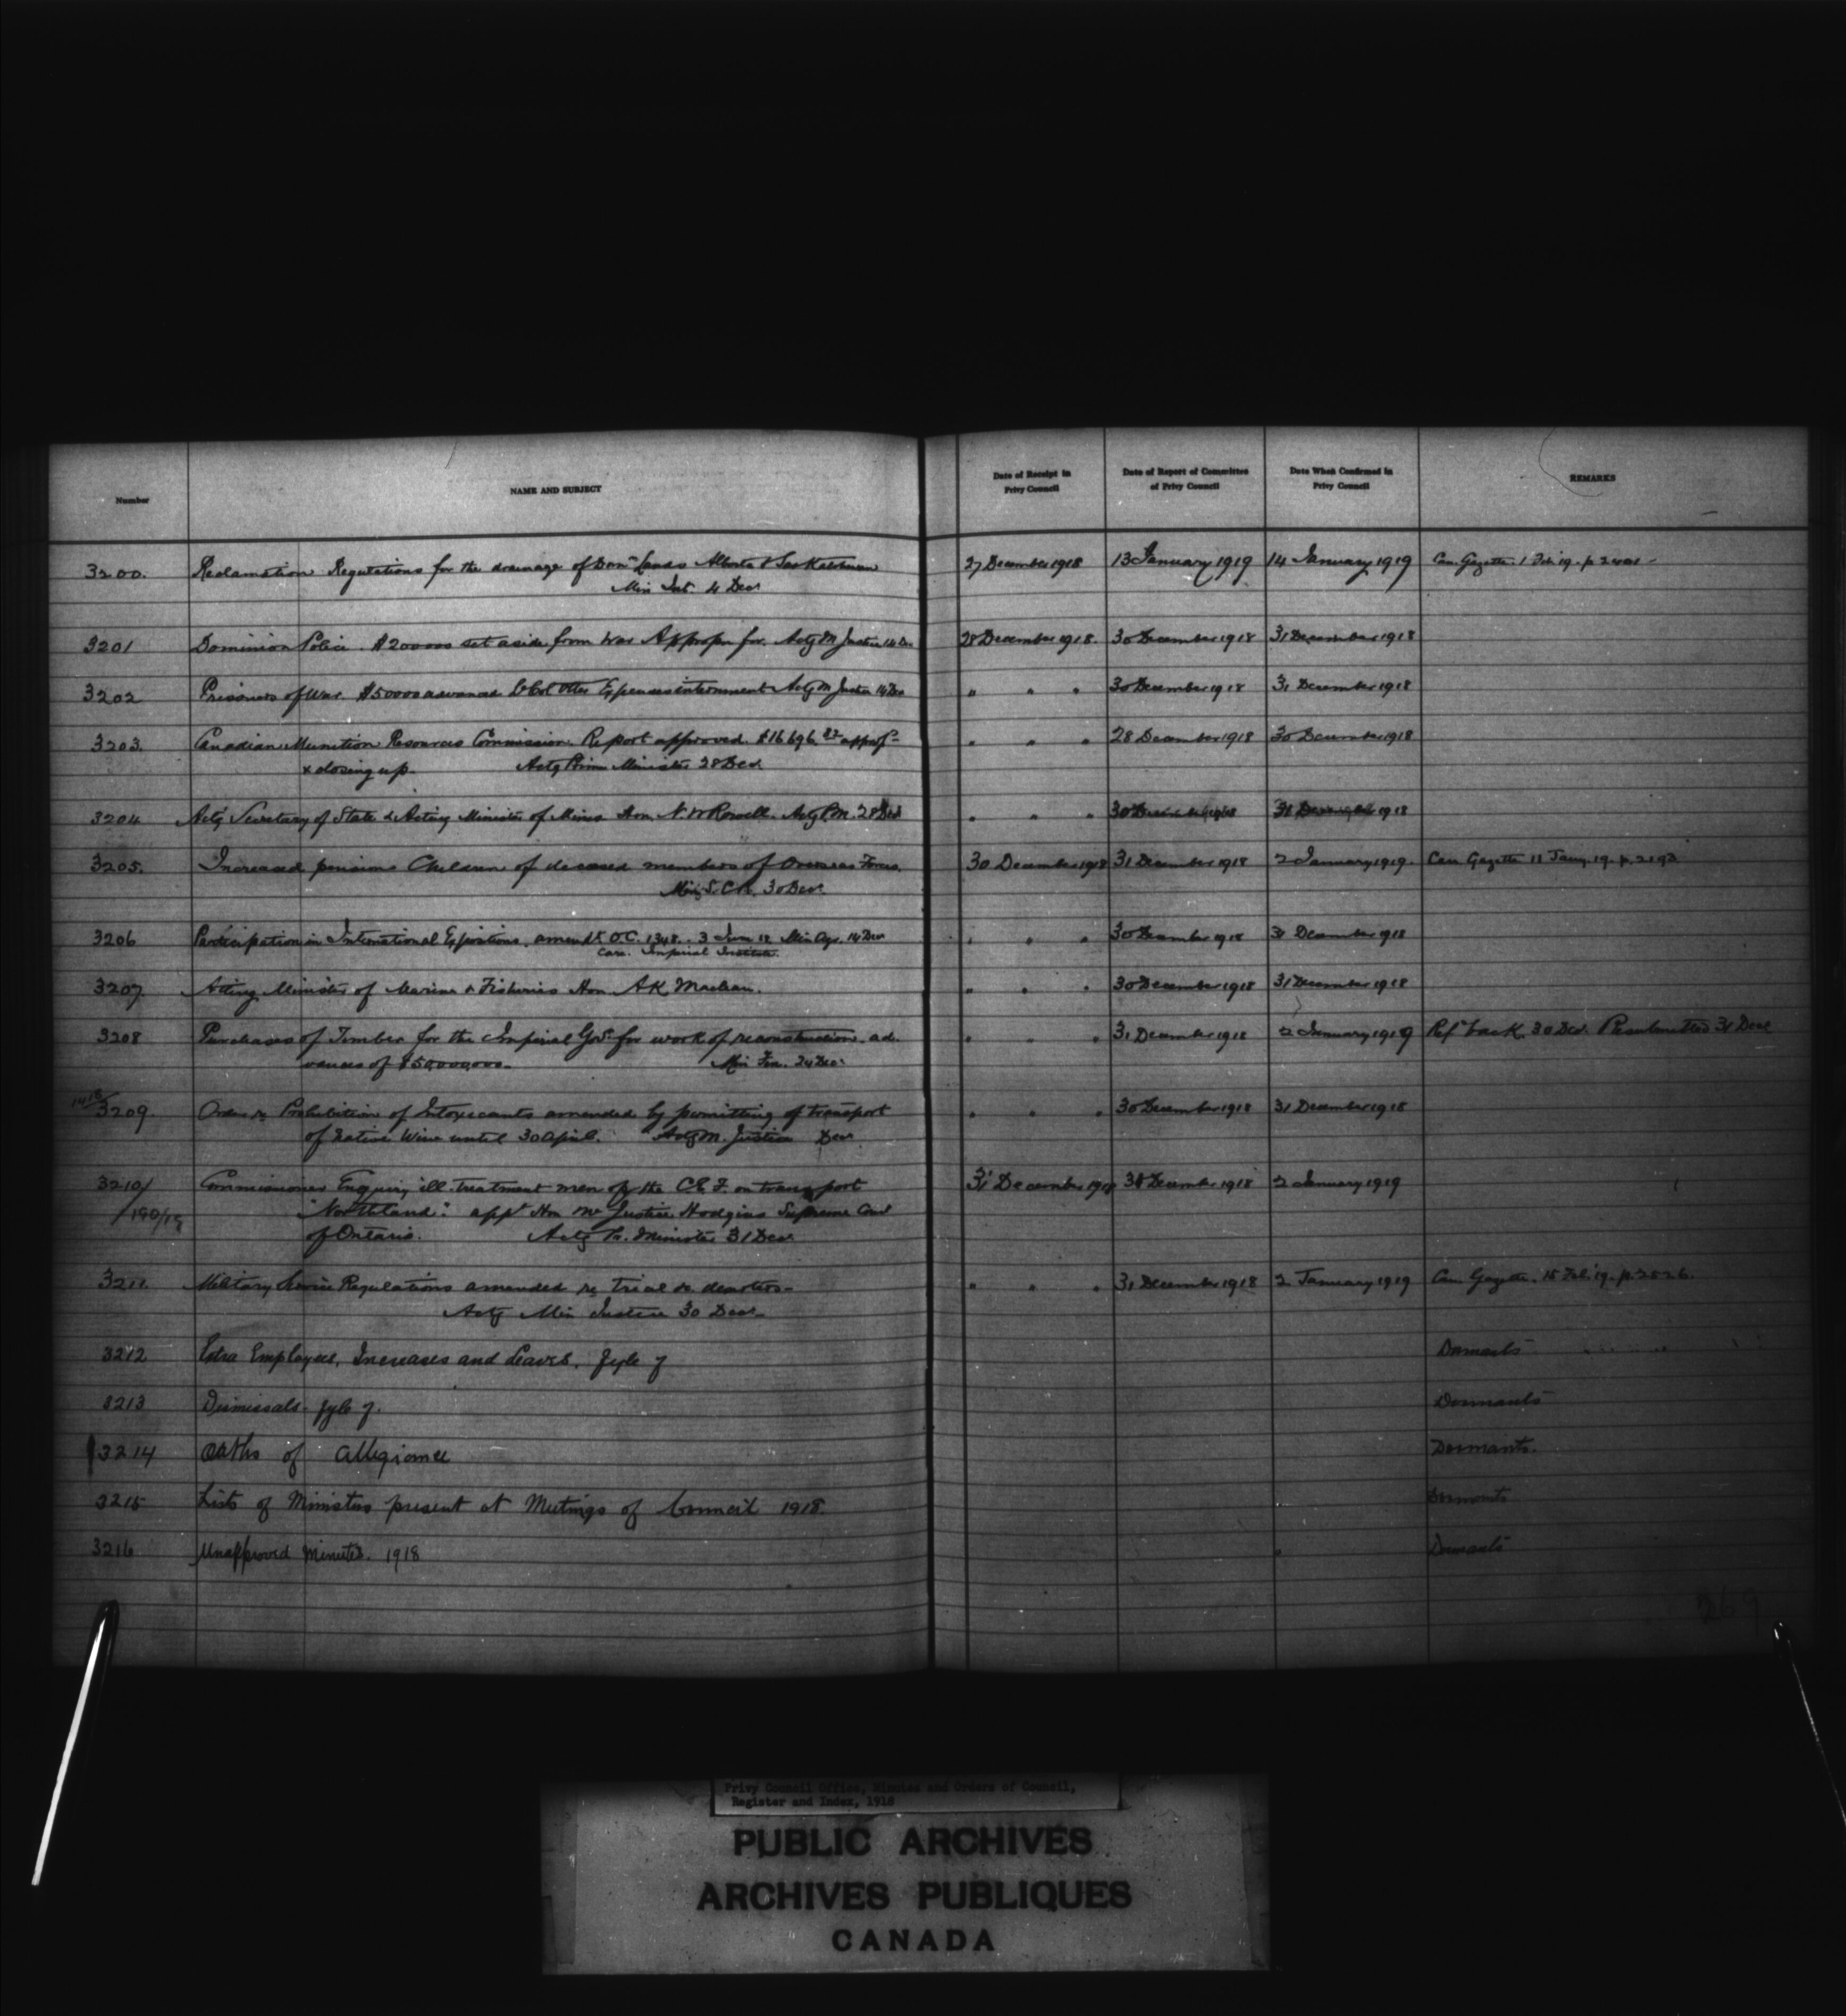 Number
NAME AND SUBJECT
Date of Receipt in
Privy Council
Date of Report of Committee
of Privy Council
Date When Confirmed in
Privy Council
REMARKS
3200. Reclamation Regulations for the drainage of Domn Lands Alberta & Saskatchewan 27 December 1918 13 January 1919 14 January 1919 Can. Gazette. 1 Feb 19. p.
Min Int. 4 Decr
3201 Dominion Police. $200000 set aside from War Appropn for. Actg M Justice 14 Dec 28 December 1918. 30 December 1918 31 December 1918
3202 Prisoners of War. $50000 advanced Expenses internment Actg M Justice 14 Dec " " " 30 December 1918 31 December 1918
3203. Canadian Munition Resources Commission. Report approved. $16696.82 " " " 28 December 1918 30 December 1918
& closing up. Actg Prime Minister 28 Decr
3204 Actg Secretary of State & Acting Minister of Mines Hon. N. W Rowell. Actg P.M. 28 Decr " " " 30 December 1918 31 December 1918
3205. Increased pensions Children of deceased members of Overseas Forces. 30 December 1918 31 December 1918 2 January 1919. Can. Gazette 11 Jany. 19. p.
Min S.C.R. 30 Decr.
3206 Participation in International Expositions. amendt O.C. 1348. 3 June 18 Min Agr. 14 Dec " " " 30 December 1918 31 December 1918
Care. Imperial Institute.
3207. Acting Minister of Marine & Fisheries Hon. A K Maclean. " " " 30 December 1918 31 December 1918
3208 Purchases of Timber for the Imperial Govt for work of reconstruction. ad- " " " 31 December 1918 2 January 1919 Refd back. 30 Dec. Resubmitted 31 Decr
vances of $50,000,000. Min Fin. 24 Dec.
3209. Order re Prohibition of Intoxicants amended by permitting of transport " " " 30 December 1918 31 December 1918
of native Wine until 30 April. Actg M. Justice Decr
3210/ Commissioner Enquiry ill-treatment men of the C.E.F. on transport 31 December 1918 31 December 1918 2 January 1919
/190/19 "Northland". appt Hon Mr Justice Hodgins Supreme Court
of Ontario. Actg Pr. Minister 31 Decr
3211 Military Service Regulations amended re trial &c deserters. " " " 31 December 1918 2 January 1919 Can. Gazette. 15 Feb. 19. p. 2526.
Actg Min Justice 30 Decr
3212 Extra Employees, Increases and Leaves. Jyle 7 Dormants
3213 Dismissals. Jyle 7. Dormants
3214 Oaths of Allegiance Dormants.
3215 Lists of Ministers present at Meetings of Council 1918. Dormants
3216 Unapproved Minutes. 1918 Dormants
269
Privy Council Office, Minutes and Orders of Council,
Register and Index, 1918
PUBLIC ARCHIVES
ARCHIVES PUBLIQUES
CANADA